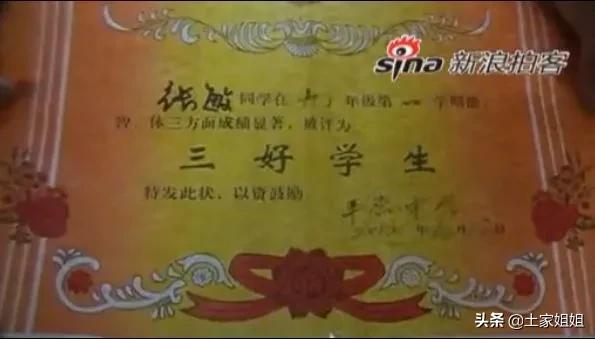 sina 新浪拍客
张敏同学在 年级第一学期德、
智、体三方面成绩显著，被评为
三好学生
特发此状，以资鼓励
头条 @土家姐姐